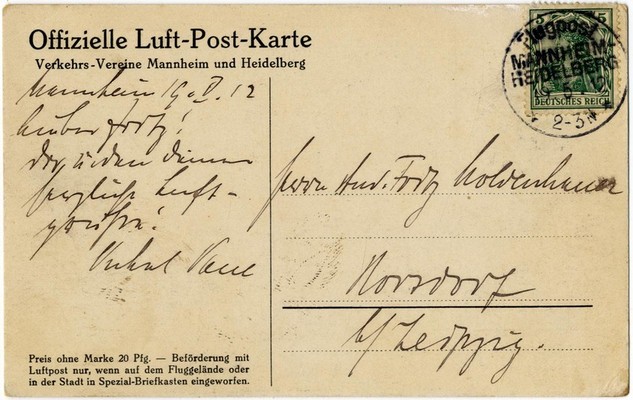 Offizielle Luft-Post-Karte
Verkehrs-Vereine Mannheim und Heidelberg
Mannheim 19. V. 12
Lieber Fritz!
Dir u. den Deinen
herzliche Luft-
grüße!
Onkel
Herrn Fritz Moldenhauer
b/Leipzig.
Preis ohne Marke 20 Pfg. — Beförderung mit
Luftpost nur, wenn auf dem Fluggelände oder
in der Stadt in Spezial-Briefkasten eingeworfen.
Flugpost
MANNHEIM-
HEIDELBERG
2-3N
5 5
DEUTSCHES REICH